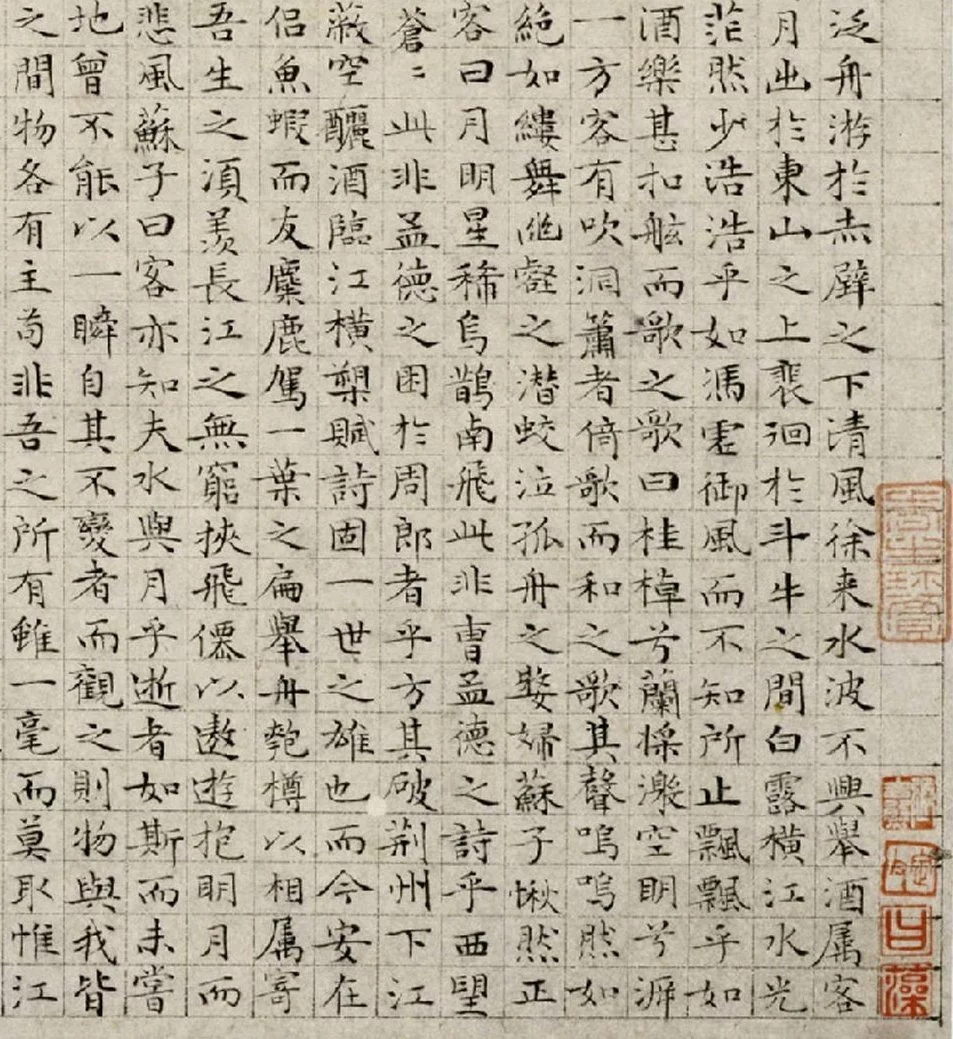 泛舟游於赤壁之下清風徐来水波不興舉酒属客
月出於東山之上裴徊於斗牛之間白露橫江水光
茫然少浩浩乎如馮虚御風而不知所止飄飄乎如
酒樂甚扣舷而歌之歌曰桂棹兮蘭槳激空明兮泝
一方客有吹洞簫者倚歌而和之歌其聲嗚嗚然如
絕如縷舞幽壑之潜蛟泣孤舟之嫠婦蘇子愀然正
客曰月明星稀烏鵲南飛此非曹孟德之詩乎西望
蒼〻此非孟德之困於周郎者乎方其破荆州下江
蔽空釃酒臨江橫槊賦詩固一世之雄也而今安在
侣魚蝦而友麋鹿駕一葉之扁舉舟匏樽以相属寄
吾生之須羨長江之無窮挾飛僊以遨遊抱明月而
悲風蘇子曰客亦知夫水與月乎逝者如斯而未嘗
地曾不能以一瞬自其不變者而觀之則物與我皆
之間物各有主苟非吾之所有雖一毫而莫取惟江